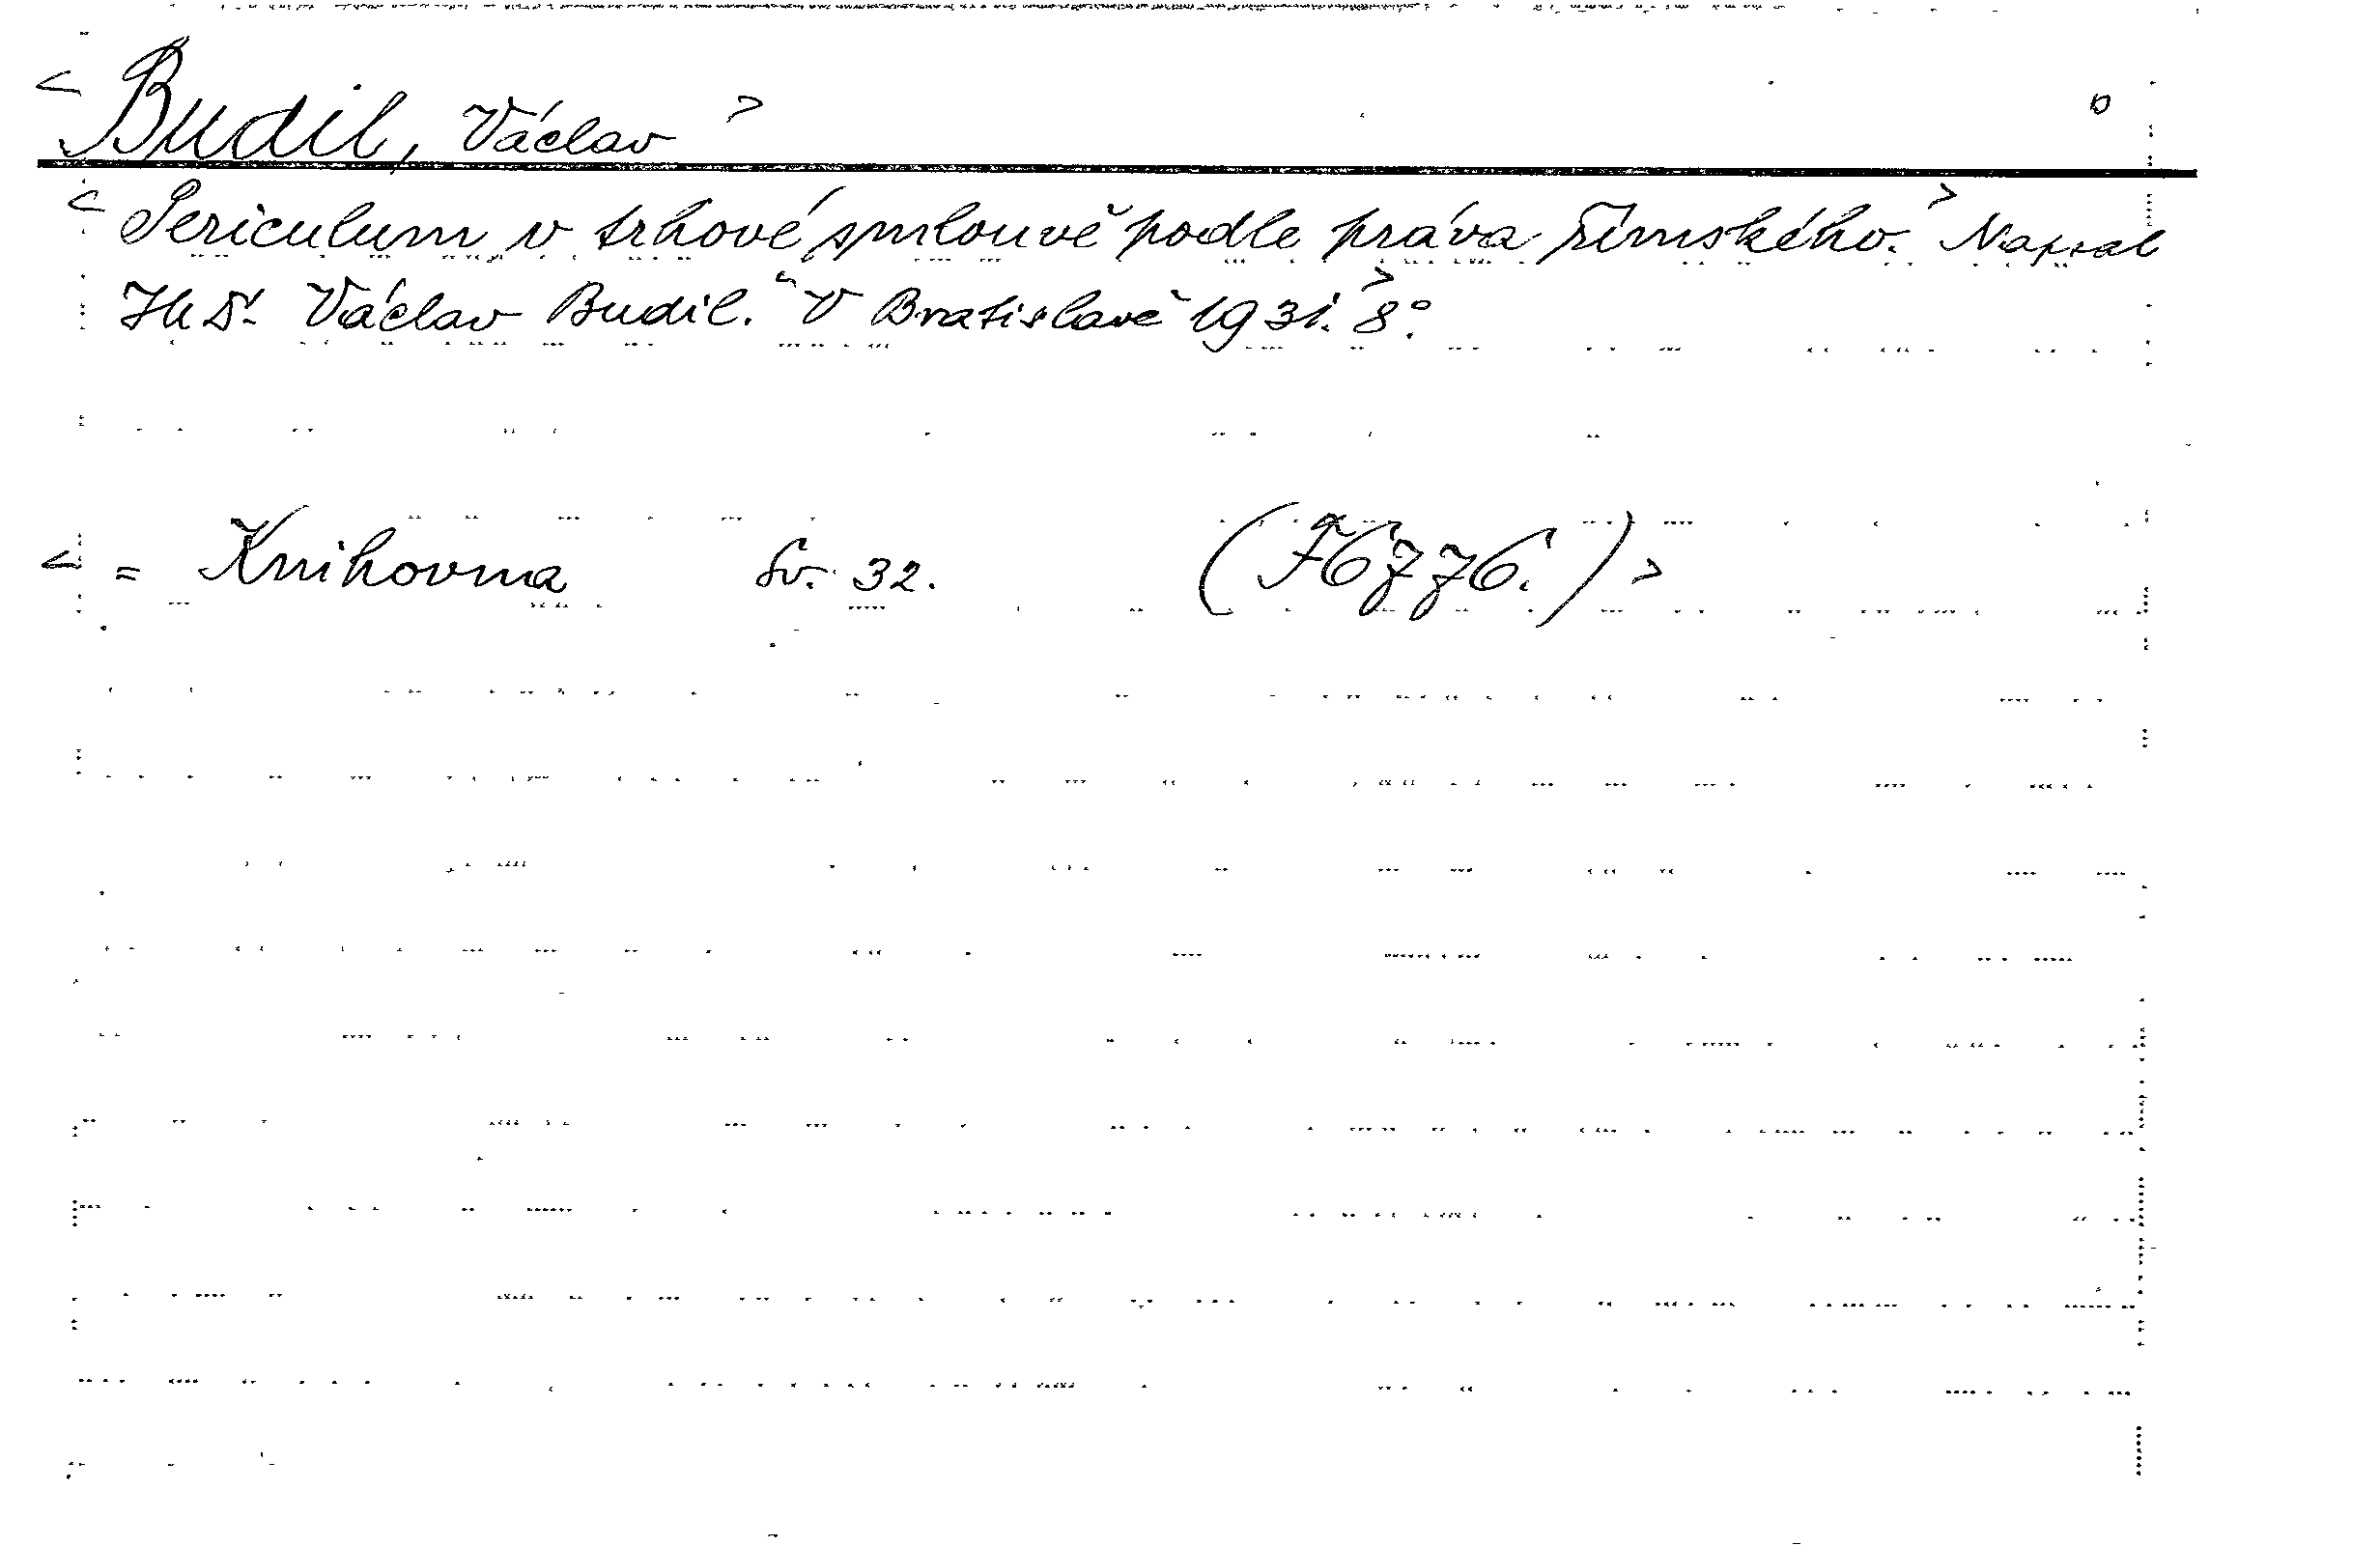 < Budil, Václav >
< Periculum v trhové smlouvě podle práva římského. > Napsal
JUDr. Václav Budil. < V Bratislavě 1931. > 8°.
< = Knihovna Sv. 32. (F6776.) >